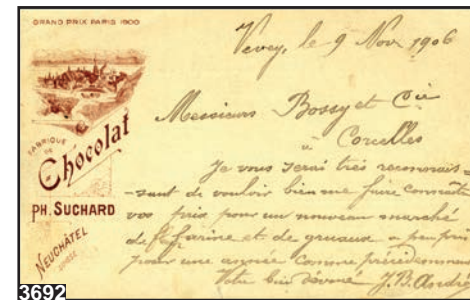 GRAND PRIX PARIS 1900
FABRIQUE
DE
Chocolat
PH. SUCHARD
NEUCHÂTEL
SUISSE
Vevey, le 9 Nov 1906
Messieurs Bossy et Cie
à Corcelles
Je vous serai très reconnais-
-sant de vouloir bien me faire connaître
vos prix pour un nouveau marché
de farine et de gruaux à peu près
pour une année comme précédemment
Votre bien dévoué J. B. André
3692